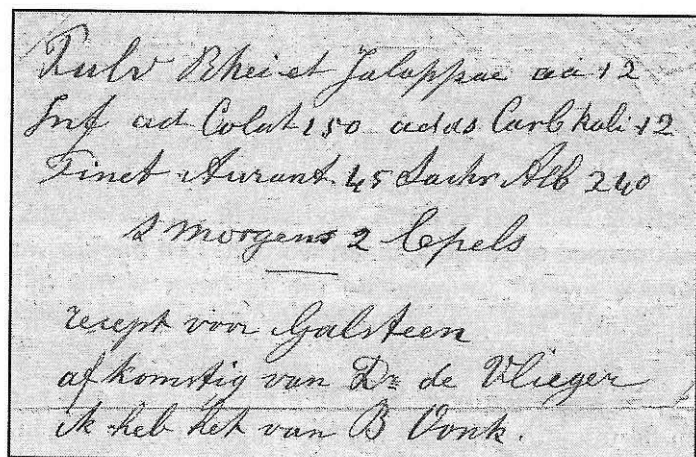 Pulv Rhei et Jalappae aa 12
Inf ad Colat 150 adds Carb kali 12
Tinct Aurant 45 Sachr Alb 240
s morgens 2 Lepels
recept voor Galsteen
afkomstig van Dr de Vlieger
ik heb het van B Vonk.